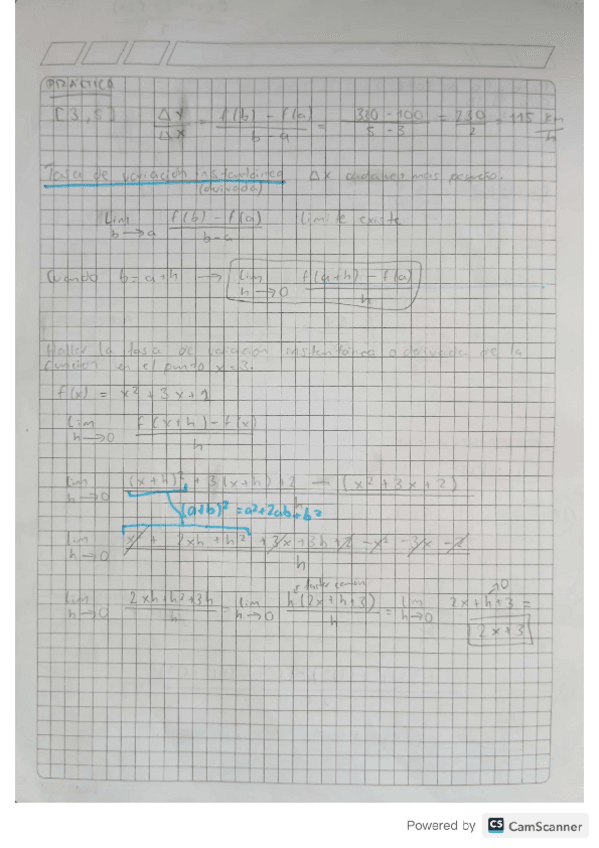 PRACTICO
[3,5] Δy/Δx = f(b) - f(a) / b - a = 330 - 100 / 5 - 3 = 230/2 = 115 km/h
Tasa de variación instantánea Δx cada vez mas pequeño.
(derivada)
Lim b→a f(b) - f(a) / b-a Limite existe
Cuando b = a+h → Lim h→0 f(a+h) - f(a) / h
Hallar la tasa de variación instantánea o derivada de la
función en el punto x=3.
f(x) = x² + 3x + 2
Lim h→0 f(x+h) - f(x) / h
Lim h→0 (x+h)² + 3(x+h) + 2 - (x² + 3x + 2) / h
(a+b)² = a² + 2ab + b²
Lim h→0 x² + 2xh + h² + 3x + 3h + 2 - x² - 3x - 2 / h
factor comun
Lim h→0 2xh + h² + 3h / h = Lim h→0 h(2x + h + 3) / h = Lim h→0 2x + h + 3 =
0
2x + 3
Powered by CS CamScanner